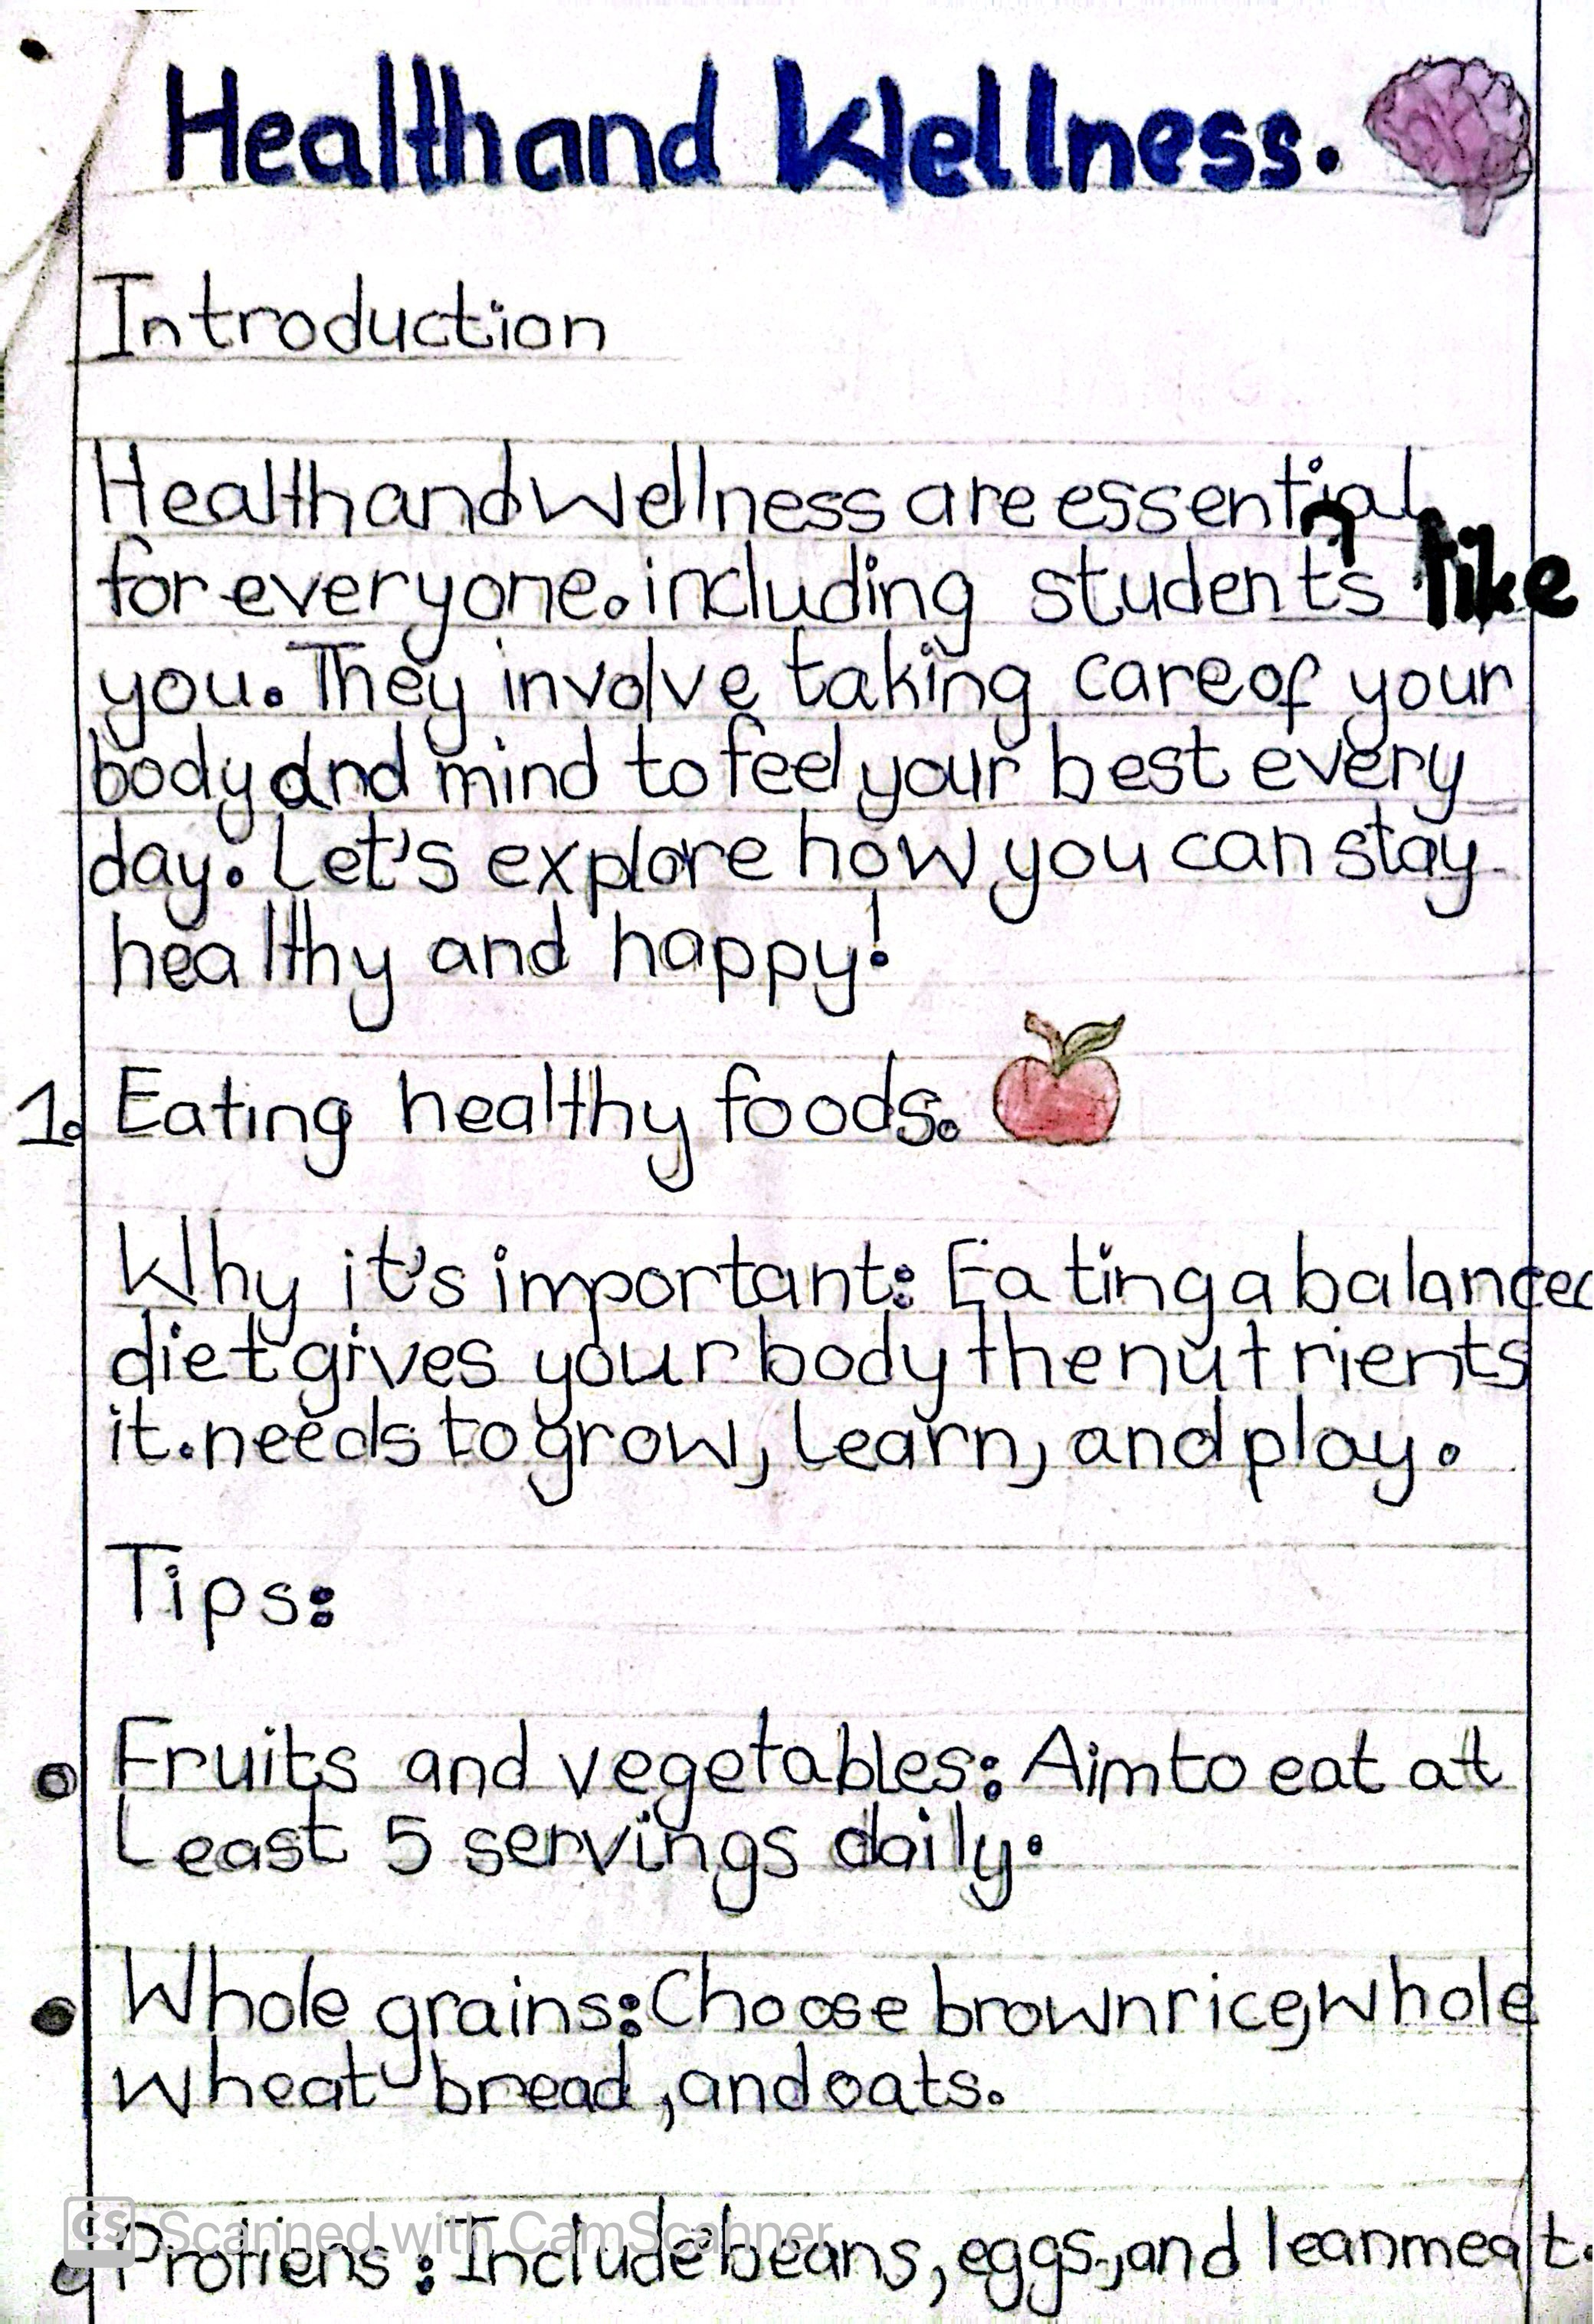 Health and Wellness.
Introduction
Health and Wellness are essential
for everyone. including students like
you. They involve taking care of your
body and mind to feel your best every
day. Let's explore how you can stay
healthy and happy!
1. Eating healthy foods.
Why it's important: Eating a balanced
diet gives your body the nutrients
it. needs to grow, learn, and play.
Tips:
Fruits and vegetables: Aim to eat at
Least 5 servings daily.
Whole grains: Choose brown rice, whole
wheat bread, and oats.
CS Scanned with CamScanner
Protiens: Include beans, eggs, and lean meat.